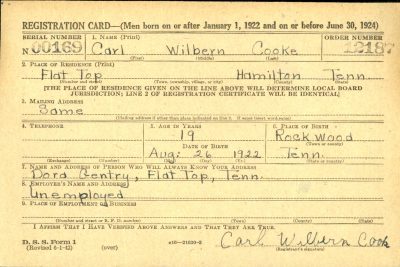 REGISTRATION CARD—(Men born on or after January 1, 1922 and on or before June 30, 1924)
SERIAL NUMBER 1. NAME (Print) ORDER NUMBER
N 00169 Carl Wilbern Cooke 12187
(First) (Middle) (Last)
2. PLACE OF RESIDENCE (Print)
Flat Top Hamilton Tenn.
(Number and street) (Town, township, village, or city) (County) (State)
[THE PLACE OF RESIDENCE GIVEN ON THE LINE ABOVE WILL DETERMINE LOCAL BOARD
JURISDICTION; LINE 2 OF REGISTRATION CERTIFICATE WILL BE IDENTICAL]
3. MAILING ADDRESS
Same
(Mailing address if other than place indicated on line 2. If same insert word same)
4. TELEPHONE 5. AGE IN YEARS 6. PLACE OF BIRTH
19 Rockwood
DATE OF BIRTH (Town or county)
Aug. 26 1922 Tenn.
(Exchange) (Number) (Mo.) (Day) (Yr.) (State or country)
7. NAME AND ADDRESS OF PERSON WHO WILL ALWAYS KNOW YOUR ADDRESS
Dora Gentry, Flat Top, Tenn.
8. EMPLOYER'S NAME AND ADDRESS
Unemployed
9. PLACE OF EMPLOYMENT OR BUSINESS
(Number and street or R. F. D. number) (Town) (County) (State)
I AFFIRM THAT I HAVE VERIFIED ABOVE ANSWERS AND THAT THEY ARE TRUE.
D. S. S. Form 1
(Revised 6-1-42) (over) 16—21630-2 Carl Wilbern Cook
(Registrant's signature)